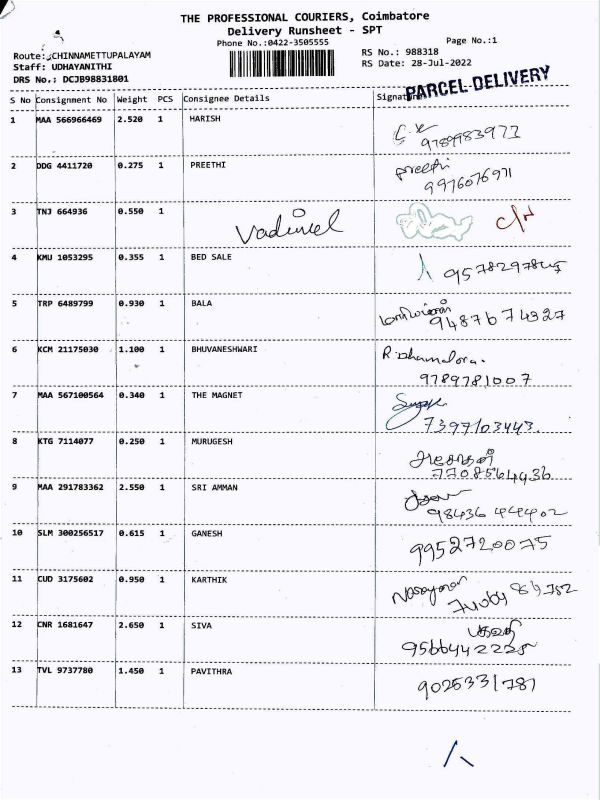 THE PROFESSIONAL COURIERS, Coimbatore
Delivery Runsheet - SPT
Phone No.:0422-3505555
Page No.:1
Route: CHINNAMETTUPALAYAM
RS No.: 988318
Staff: UDHAYANITHI
RS Date: 28-Jul-2022
DRS No.: DCJB98831801
PARCEL DELIVERY
S No Consignment No Weight PCS Consignee Details Signature
1 MAA 566966469 2.520 1 HARISH
2 DDG 4411720 0.275 1 PREETHI preethi
9976076971
3 TNJ 664936 0.550 1 Vadivel
4 KMU 1053295 0.355 1 BED SALE
5 TRP 6489799 0.930 1 BALA
9487674327
6 KCM 21175030 1.100 1 BHUVANESHWARI
9789781007
7 MAA 567100564 0.340 1 THE MAGNET
7397103443.
8 KTG 7114077 0.250 1 MURUGESH
7708564936
9 MAA 291783362 2.550 1 SRI AMMAN
98436 44402
10 SLM 300256517 0.615 1 GANESH 9952720075
11 CUD 3175602 0.950 1 KARTHIK Narayanan
12 CNR 1681647 2.650 1 SIVA
9566442225
13 TVL 9737780 1.450 1 PAVITHRA 9025331781